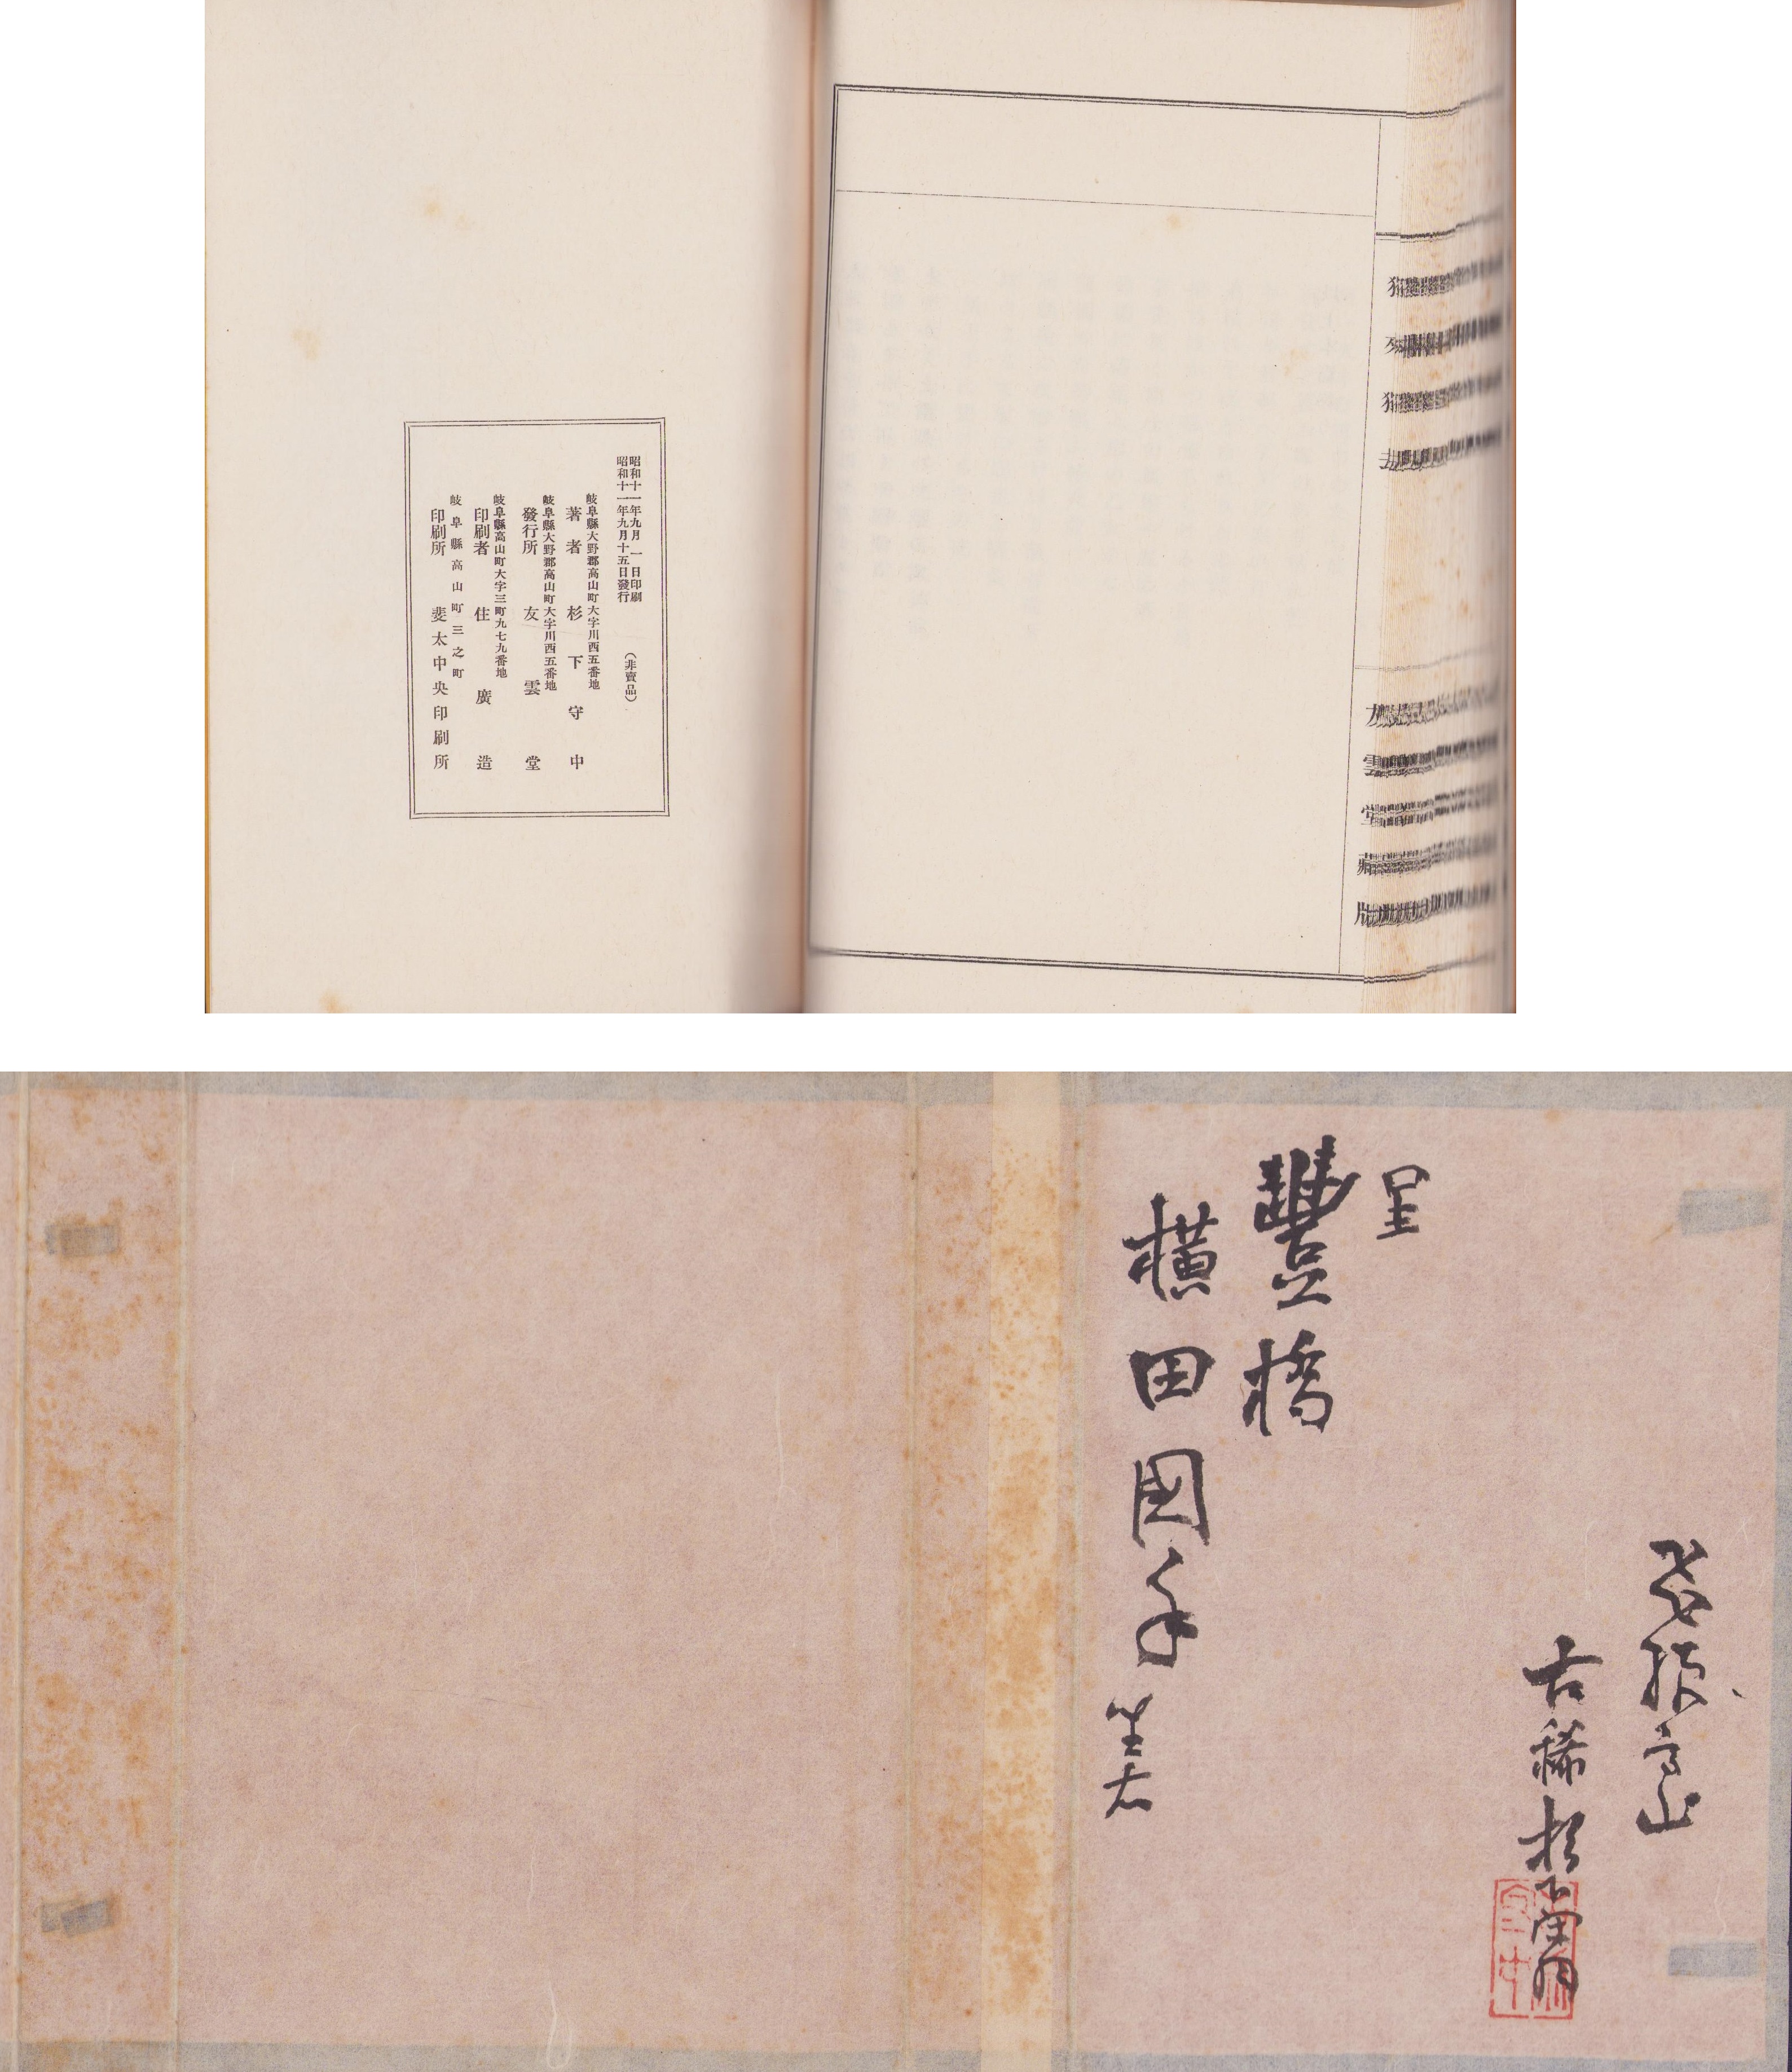 昭和十一年九月一日印刷
昭和十一年九月十五日發行
（非賣品）
岐阜縣大野郡高山町大字川西五番地
著者 杉下守中
岐阜縣大野郡高山町大字川西五番地
發行所 友雲堂
岐阜縣高山町大字三町九七九番地
印刷者 住廣造
岐阜縣高山町三之町
印刷所 斐太中央印刷所
友雲堂藏版
飛騨高山
古稀杉下
呈
豐橋
橫田國手
坐右